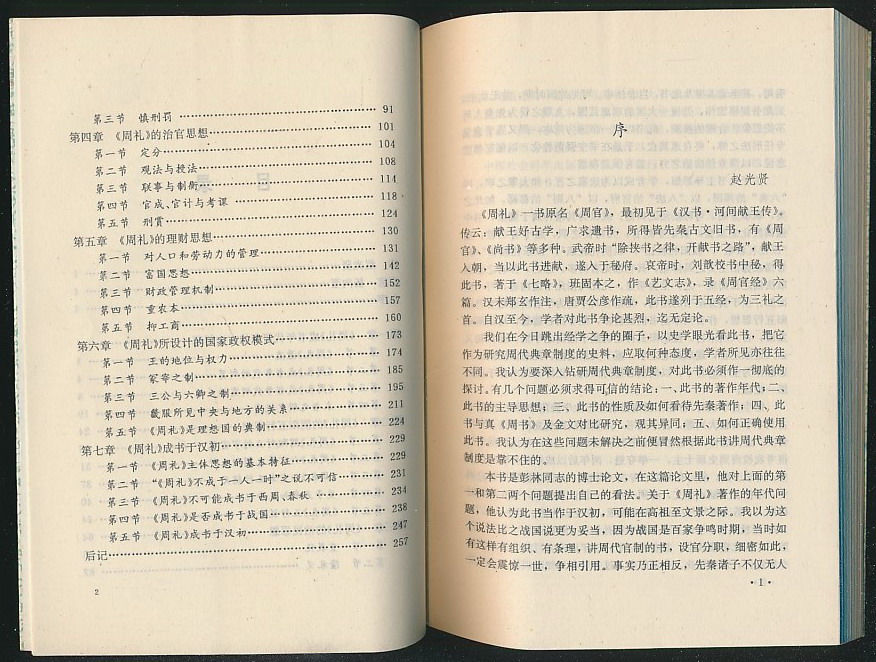 第三节 慎刑罚 …… 91
第四章 《周礼》的治官思想 …… 101
第一节 定分 …… 104
第二节 观法与授法 …… 108
第三节 联事与制衡 …… 114
第四节 官成、官计与考课 …… 118
第五节 刑赏 …… 124
第五章 《周礼》的理财思想 …… 130
第一节 对人口和劳动力的管理 …… 131
第二节 富国思想 …… 142
第三节 财政管理机制 …… 152
第四节 重农本 …… 157
第五节 抑工商 …… 160
第六章 《周礼》所设计的国家政权模式 …… 173
第一节 王的地位与权力 …… 174
第二节 冢宰之制 …… 185
第三节 三公与六卿之制 …… 195
第四节 畿服所见中央与地方的关系 …… 211
第五节 《周礼》是理想国的典制 …… 224
第七章 《周礼》成书于汉初 …… 229
第一节 《周礼》主体思想的基本特征 …… 229
第二节 “《周礼》不成于一人一时”之说不可信 …… 231
第三节 《周礼》不可能成书于西周、春秋 …… 234
第四节 《周礼》是否成书于战国 …… 238
第五节 《周礼》成书于汉初 …… 247
后记 …… 257
2
序
赵光贤
《周礼》一书原名《周官》，最初见于《汉书·河间献王传》。
传云：献王好古学，广求遗书，所得皆先秦古文旧书，有《周
官》、《尚书》等多种。武帝时“除挟书之律，开献书之路”，献王
入朝，当以此书进献，遂入于秘府。哀帝时，刘歆校书中秘，得
此书，著于《七略》，班固本之，作《艺文志》，录《周官经》六
篇。汉末郑玄作注，唐贾公彦作疏，此书遂列于五经，为三礼之
首。自汉至今，学者对此书争论甚烈，迄无定论。
我们在今日跳出经学之争的圈子，以史学眼光看此书，把它
作为研究周代典章制度的史料，应取何种态度，学者所见亦往往
不同。我认为要深入钻研周代典章制度，对此书必须作一彻底的
探讨。有几个问题必须求得可信的结论：一、此书的著作年代；二、
此书的主导思想；三、此书的性质及如何看待先秦著作；四、此
书与真《周书》及金文对比研究，观其异同；五、如何正确使用
此书。我认为在这些问题未解决之前便冒然根据此书讲周代典章
制度是靠不住的。
本书是彭林同志的博士论文，在这篇论文里，他对上面的第
一和第二两个问题提出自己的看法。关于《周礼》著作的年代问
题，他认为此书当作于汉初，可能在高祖至文景之际。我以为这
个说法比之战国说更为妥当，因为战国是百家争鸣时期，当时如
有这样有组织、有条理，讲周代官制的书，设官分职，细密如此，
一定会震惊一世，争相引用。事实乃正相反，先秦诸子不仅无人
·1·